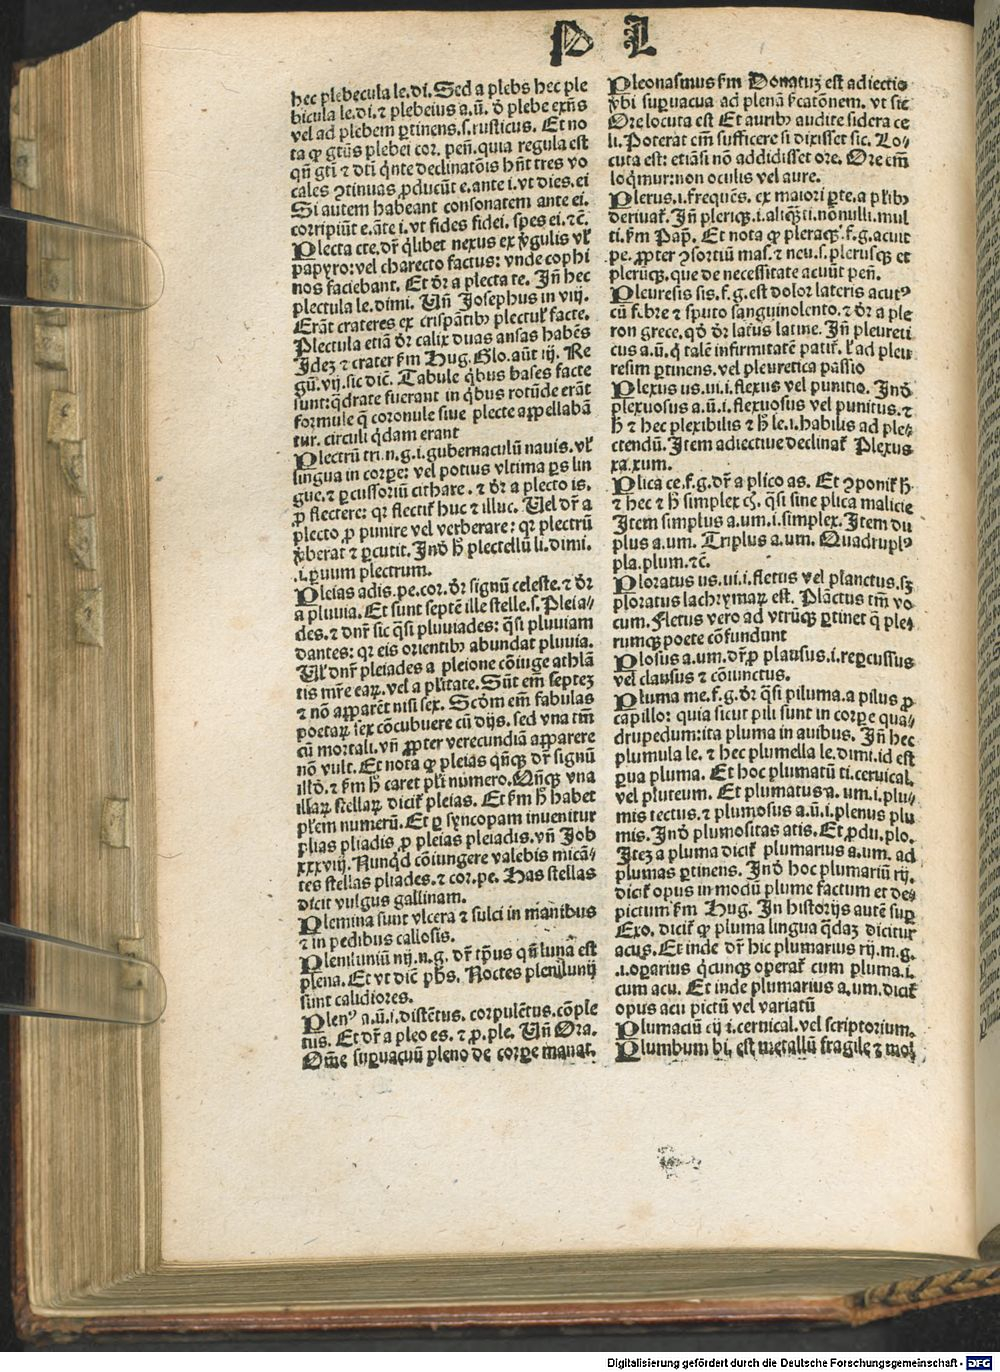 P L
hec plebecula le. di. Sed a plebs hec ple
bicula le. di. ⁊ plebeius a. ū. ð plebe exn̄s
vel ad plebem ꝑtinens. s. rusticus. Et no
ta ꝙ gtūs plebei cor. peñ. quia regula est
qñ gti ⁊ dti qͥnte declinatōis hñt tres vo
cales ꝯtinuas ꝓducūt e. ante i. vt dies. ei
Si autem habeant consonatem ante ei.
corripiūt e. āte i. vt fides fidei. spes ei. ⁊c̄.
Plecta cte. dr̄ qͥlibet nexus ex vͥgulis vl̓
papyro: vel charecto factus: vnde cophi
nos faciebant. Et ðr a plecta te. Iñ hec
plectula le. dimi. Uñ Josephus in viij.
Erāt crateres ex crispātibꝰ plectul̓ facte.
Plectula etiā ðr calix duas ansas habēs
Idez ⁊ crater ẜm Hug. Glo. aūt iij. Re
gū. vij. sic dic̄. Tabule qͥbus bases facte
sunt: qͣdrate fuerant in qͥbus rotūde erāt
formule q̄ coronule siue plecte appellabā
tur. circuli qͥdam erant
Plectrū tri. n. g. i. gubernaculū nauis. vl̓
lingua in corꝑe: vel potius vltima ꝑs lin
gue. ⁊ ꝑcussoriū cithare. ⁊ ðr a plecto is.
ꝓ flectere: qr flectit̓ huc ⁊ illuc. Uel dr̄ a
plecto ꝓ punire vel verberare: qr plectrū
vͥberat ⁊ ꝑcutit. Inð h̄ plectellū li. dimi.
.i. ꝑuum plectrum.
Pleias adis. pe. cor. ðr signū celeste. ⁊ ðr
a pluuia. Et sunt septē ille stelle. s. Pleia⸗
des. ⁊ dnr̄ sic qͣsi pluuiades: qͣsi pluuiam
dantes: qr eis orientibꝰ abundat pluuia.
Ul̓ dnr̄ pleiades a pleione cōiuge athlā
tis mr̄e eaꝝ. vel a pl̓itate. Sūt em̄ septez
⁊ nō apparēt nisi sex. Scðm em̄ fabulas
poetaꝝ sex cōcubuere cū dijs. sed vna tm̄
cū mortali. vñ ꝓpter verecundiā apparere
nō vult. Et nota ꝙ pleias qñqꝫ dr̄ signū
illð. ⁊ ẜm h̄ caret pl̓i numero. Qñqꝫ vna
illaꝝ stellaꝝ dicit̓ pleias. Et ẜm h̄ habet
pl̓em numerū. Et ꝑ syncopam inuenitur
plias pliadis ꝓ pleias pleiadis. vñ Job
xxxviij. Nunqͥd cōiungere valebis micā⸗
tes stellas pliades. ⁊ cor. pe. Has stellas
dicit vulgus gallinam.
Plemina sunt vlcera ⁊ sulci in manibus
⁊ in pedibus callosis.
Pleniluniū nij. n. g. dr̄ tp̄us qñ luna est
plena. Et vt dic̄ phs. Noctes plenilunij
sunt calidiores.
Plenꝰ a. ū. i. distētus. corpulētus. cōple
tus. Et dr̄ a pleo es. ⁊ ꝓ. ple. Uñ Ora.
Om̄e suꝑuacuū pleno de corꝑe manat.
Pleonasmus ẜm Donatuz est adiectio
vͥbi suꝑuacua ad plenā ẜcatōnem. vt sic
Ore locuta est Et auribꝰ audite sidera ce
li. Poterat em̄ sufficere si dixisset sic. Lo⸗
cuta est: etiāsi nō addidisset ore. Ore em̄
loqͥmur: non oculis vel aure.
Plerus. i. frequēs. ex maiori ꝑte. a pl̓ibꝰ
deriuat̓. Iñ pleriqꝫ. i. aliqͣti. nōnulli. mul
ti. ẜm Pap. Et nota ꝙ pleraqꝫ. f. g. acuit
pe. ꝓpter ꝯsortiū mas. ⁊ neu. s. plerusqꝫ et
plerūqꝫ. que de necessitate acuūt peñ.
Pleuresis sis. f. g. est dolor lateris acutꝰ
cū febre ⁊ sputo sanguinolento. ⁊ ðr a ple
ron grece. qð ðr latus latine. Iñ pleureti
cus a. ū. qͥ talē infirmitatē patit̓. l̓ ad pleu
resim ꝑtinens. vel pleuretica passio
Plexus us. ui. i. flexus vel punitio. Inð
plexuosus a. ū. i. flexuosus vel punitus. ⁊
h̄ ⁊ hec plexibilis ⁊ h̄ le. i. habilis ad ple⸗
ctendū. Item adiectiue declinat̓ Plexus
xa. xum.
Plica ce. f. g. dr̄ a plico as. Et ꝯponit̓ h̄
⁊ hec ⁊ h̄ simplex cꝭ. qͣsi sine plica malicie
Item simplus a. um. i. simplex. Item du
plus a. um. Triplus a. um. Quadruplꝰ
pla. plum. ⁊c̄.
Ploratus us. ui. i. fletus vel planctus. sꝫ
ploratus lachrymaꝝ est. Plāctus tm̄ vo
cum. Fletus vero ad vtrūqꝫ ꝑtinet q̄ ple⸗
rumqꝫ poete cōfundunt
Plosus a. um. dr̄. ꝓ plausus. i. reꝑcussus
vel clausus ⁊ cōiunctus.
Pluma me. f. g. ðr qͣsi piluma. a pilus ꝓ
capillo: quia sicut pili sunt in corꝑe qua⸗
drupedum: ita pluma in auibus. Iñ hec
plumula le. ⁊ hec plumella le. dimi. id est
ꝑua pluma. Et hoc plumatū ti. ceruical.
vel pluteum. Et plumatus a. um. i. plu⸗
mis tectus. ⁊ plumosus a. ū. i. plenus plu
mis. Inð plumositas atis. Et ꝓdu. plo.
Itez a pluma dicit̓ plumarius a. um. ad
plumas ꝑtinens. Inð hoc plumariū rij.
dicit̓ opus in modū plume factum et de⸗
pictum ẜm Hug. In historijs autē suꝑ
Exo. dicit̓ ꝙ pluma lingua qͣdaz dicitur
acus. Et inde dr̄ hic plumarius rij. m. g.
.i. oꝑarius qͥcunqꝫ operat̓ cum pluma. i.
cum acu. Et inde plumarius a. um. dicit̓
opus acu pictū vel variatū
Plumaciū cij i. ceruical. vel scriptorium.
Plumbum bi. est metallū fragile ⁊ mol
Digitalisierung gefördert durch die Deutsche Forschungsgemeinschaft - DFG